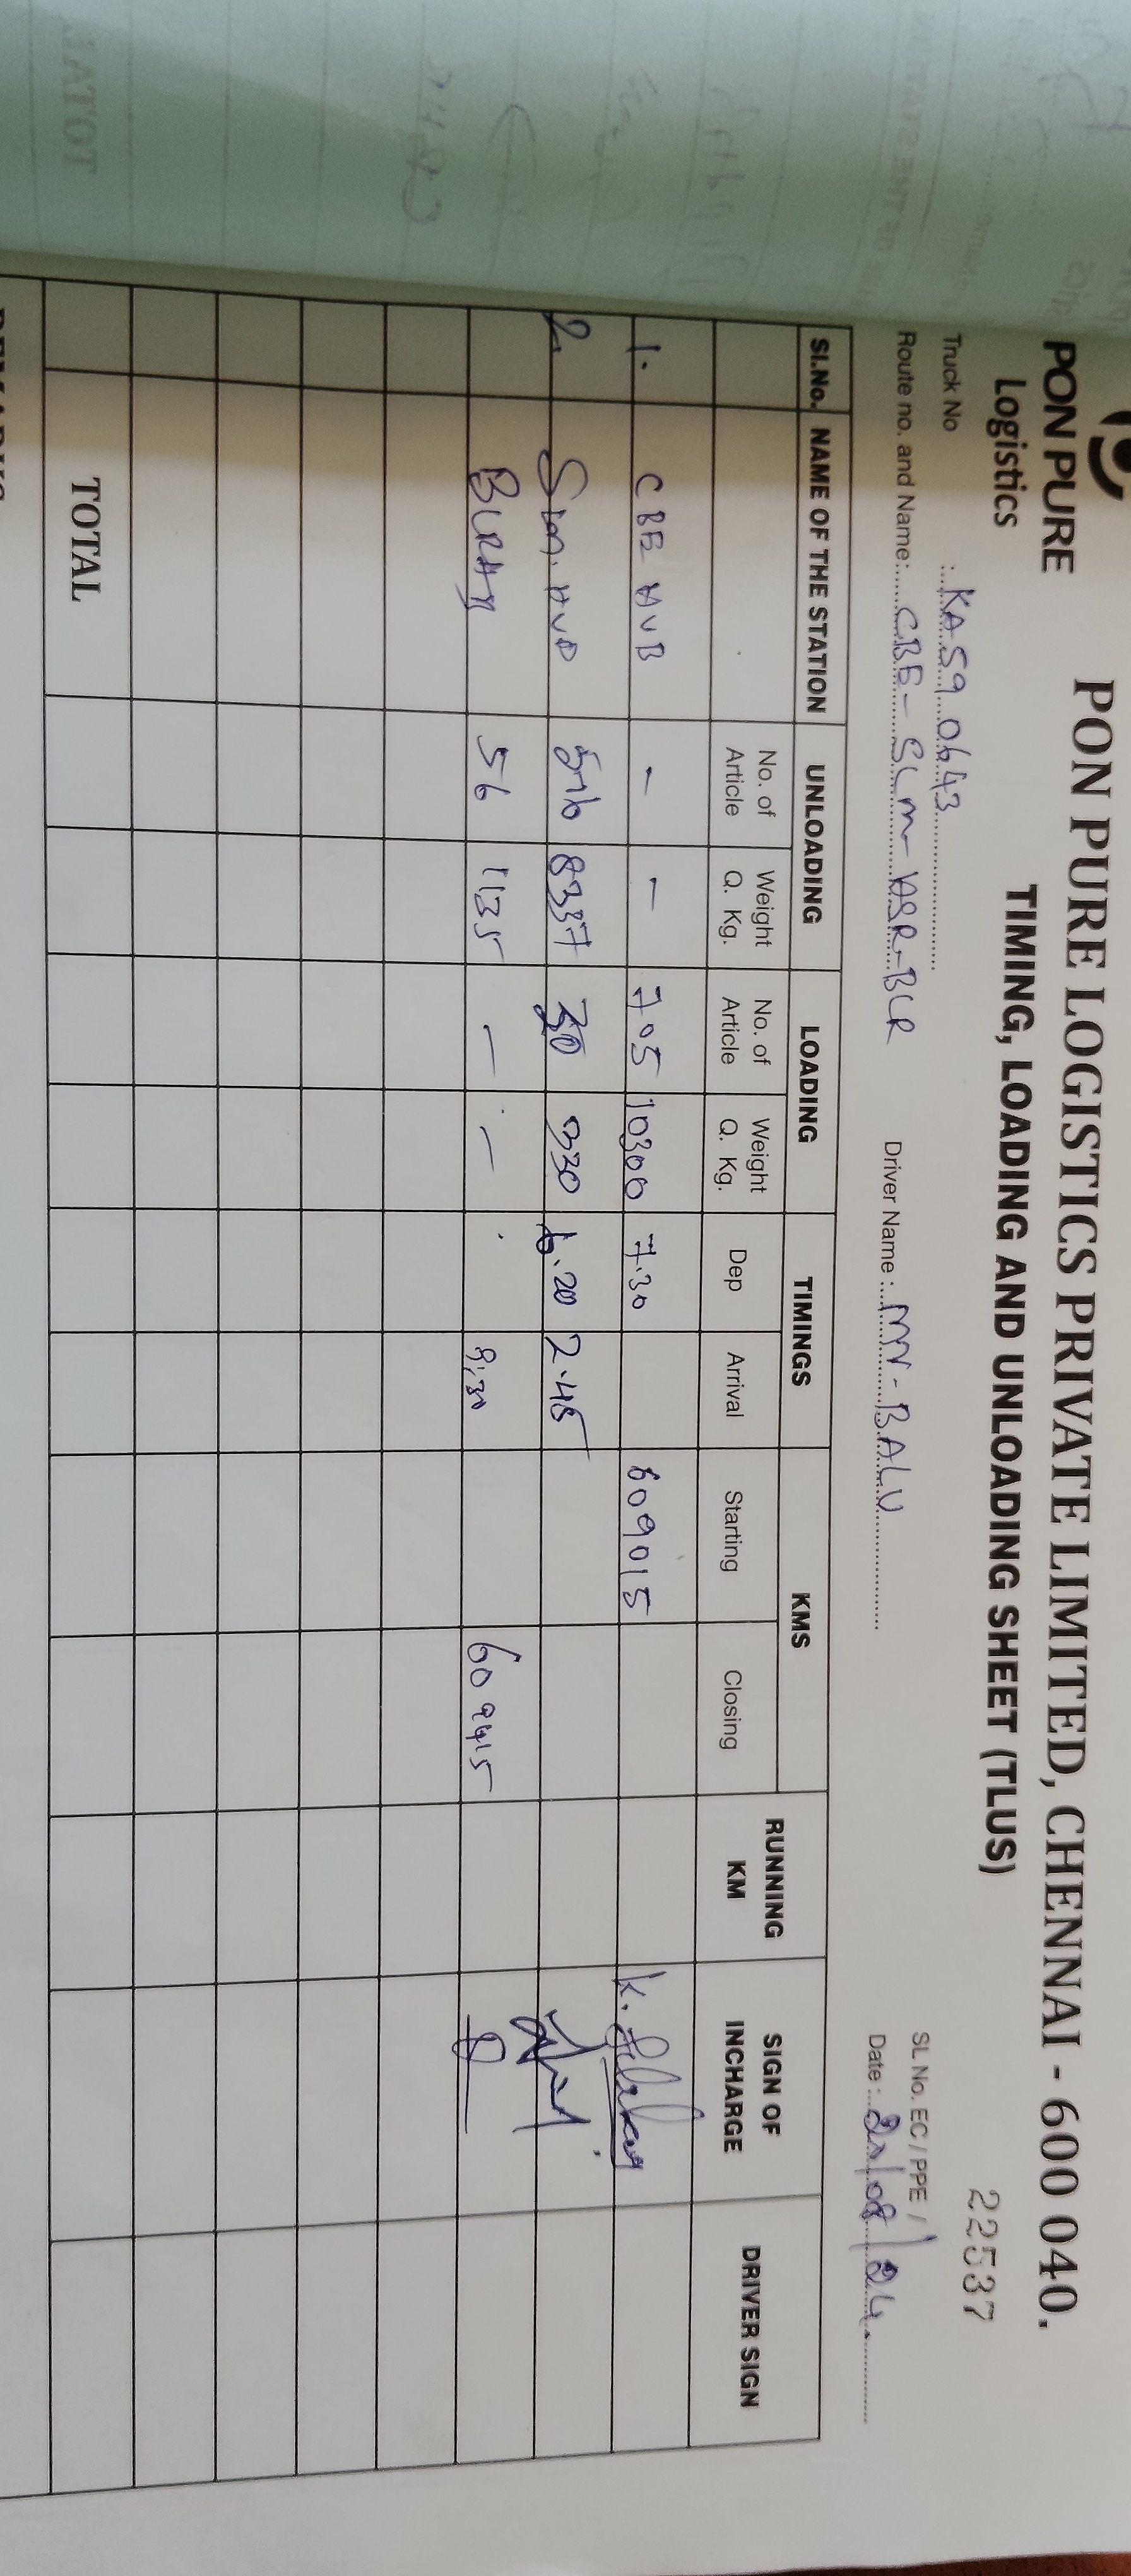 PON PURE LOGISTICS PRIVATE LIMITED, CHENNAI - 600 040.
PON PURE
Logistics
TIMING, LOADING AND UNLOADING SHEET (TLUS)
22537
Truck No : KA 59 0643
SL No. EC / PPE /
Route no. and Name: CBE - SLM - HSR - BLR Driver Name : MR - BALU Date : 20/08/24.
Sl.No. NAME OF THE STATION UNLOADING LOADING TIMINGS KMS RUNNING KM SIGN OF INCHARGE DRIVER SIGN
No. of Article Weight Q. Kg. No. of Article Weight Q. Kg. Dep Arrival Starting Closing
1. CBE HUB - - 705 10300 7.30 609015
2. SLM. HUB 576 8337 30 330 6.20 2.45
56 1135 - - 8.30 609415
TOTAL
TOTAL